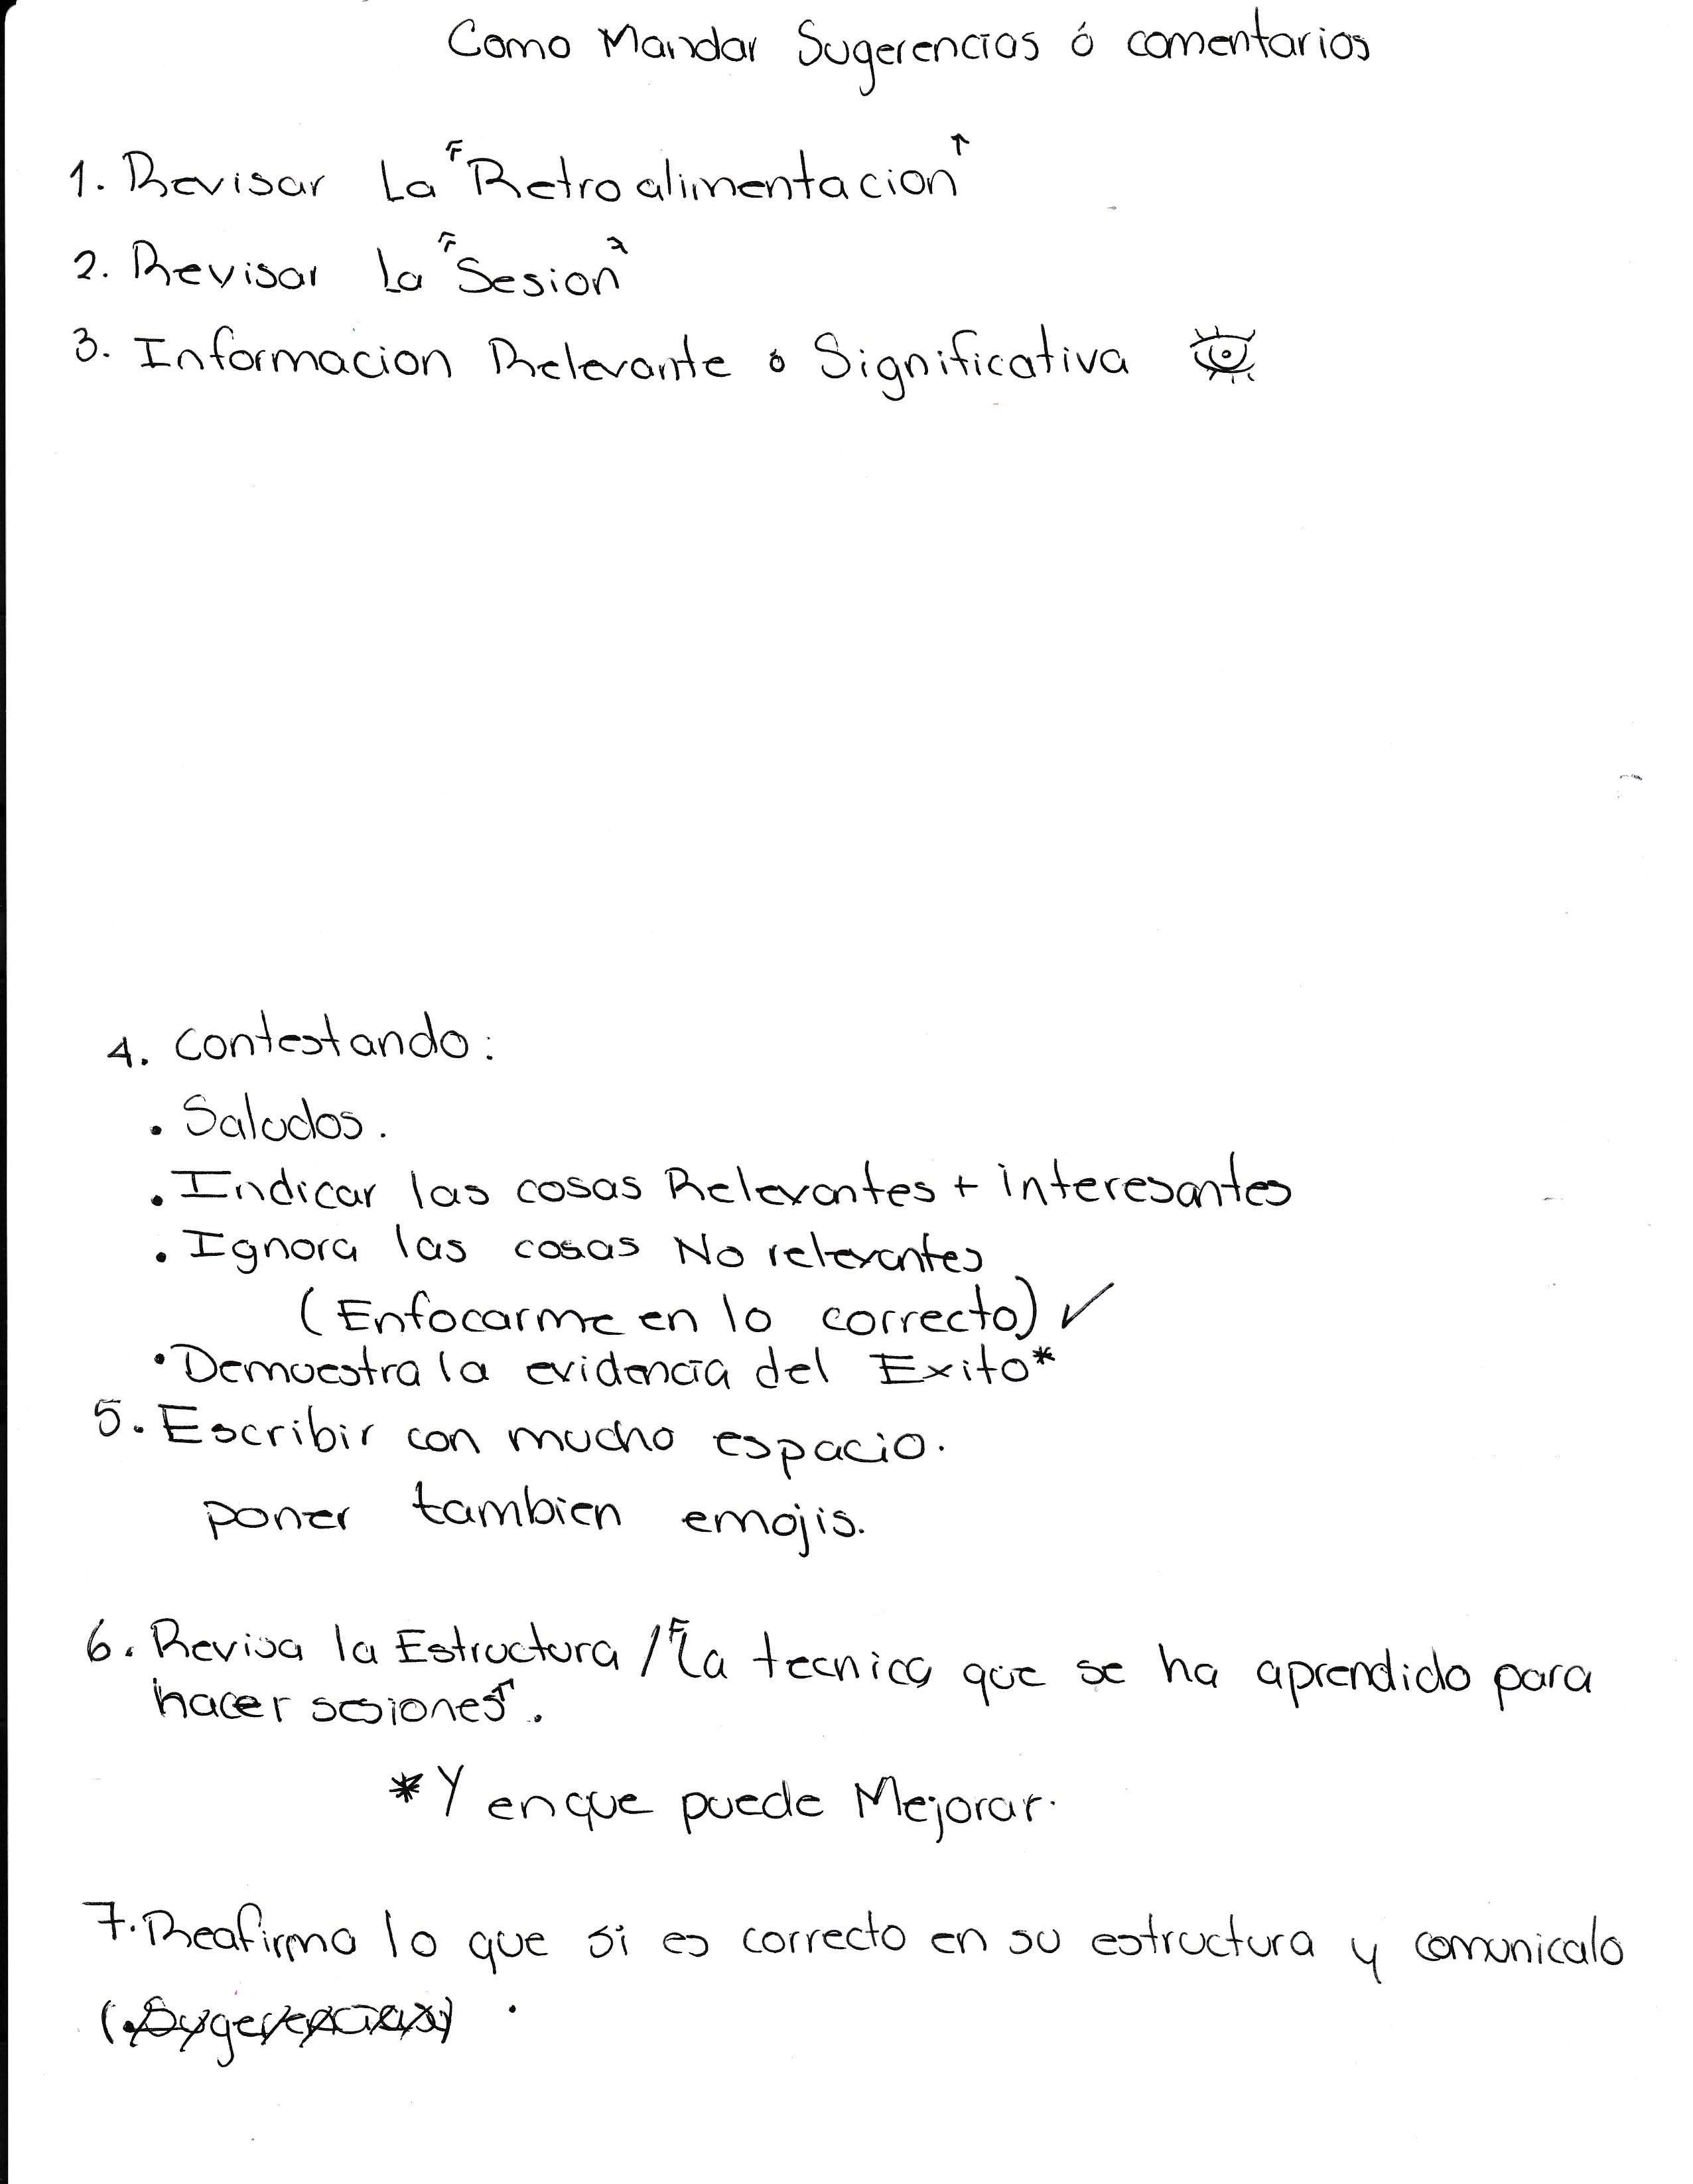 Como Mandar Sugerencias ó comentarios
1. Revisar La "Retroalimentacion"
2. Revisar la "Sesion"
3. Informacion Relevante o Significativa
4. Contestando:
• Saludos.
• Indicar las cosas Relevantes + interesantes
• Ignora las cosas No relevantes
(Enfocarme en lo correcto) ✓
• Demuestra la evidencia del Exito*
5. Escribir con mucho espacio.
poner tambien emojis.
6. Revisa la Estructura / "la tecnica que se ha aprendido para
hacer sesiones".
*Y en que puede Mejorar.
7. Reafirma lo que si es correcto en su estructura y comunicalo
(•Sugerencias) .